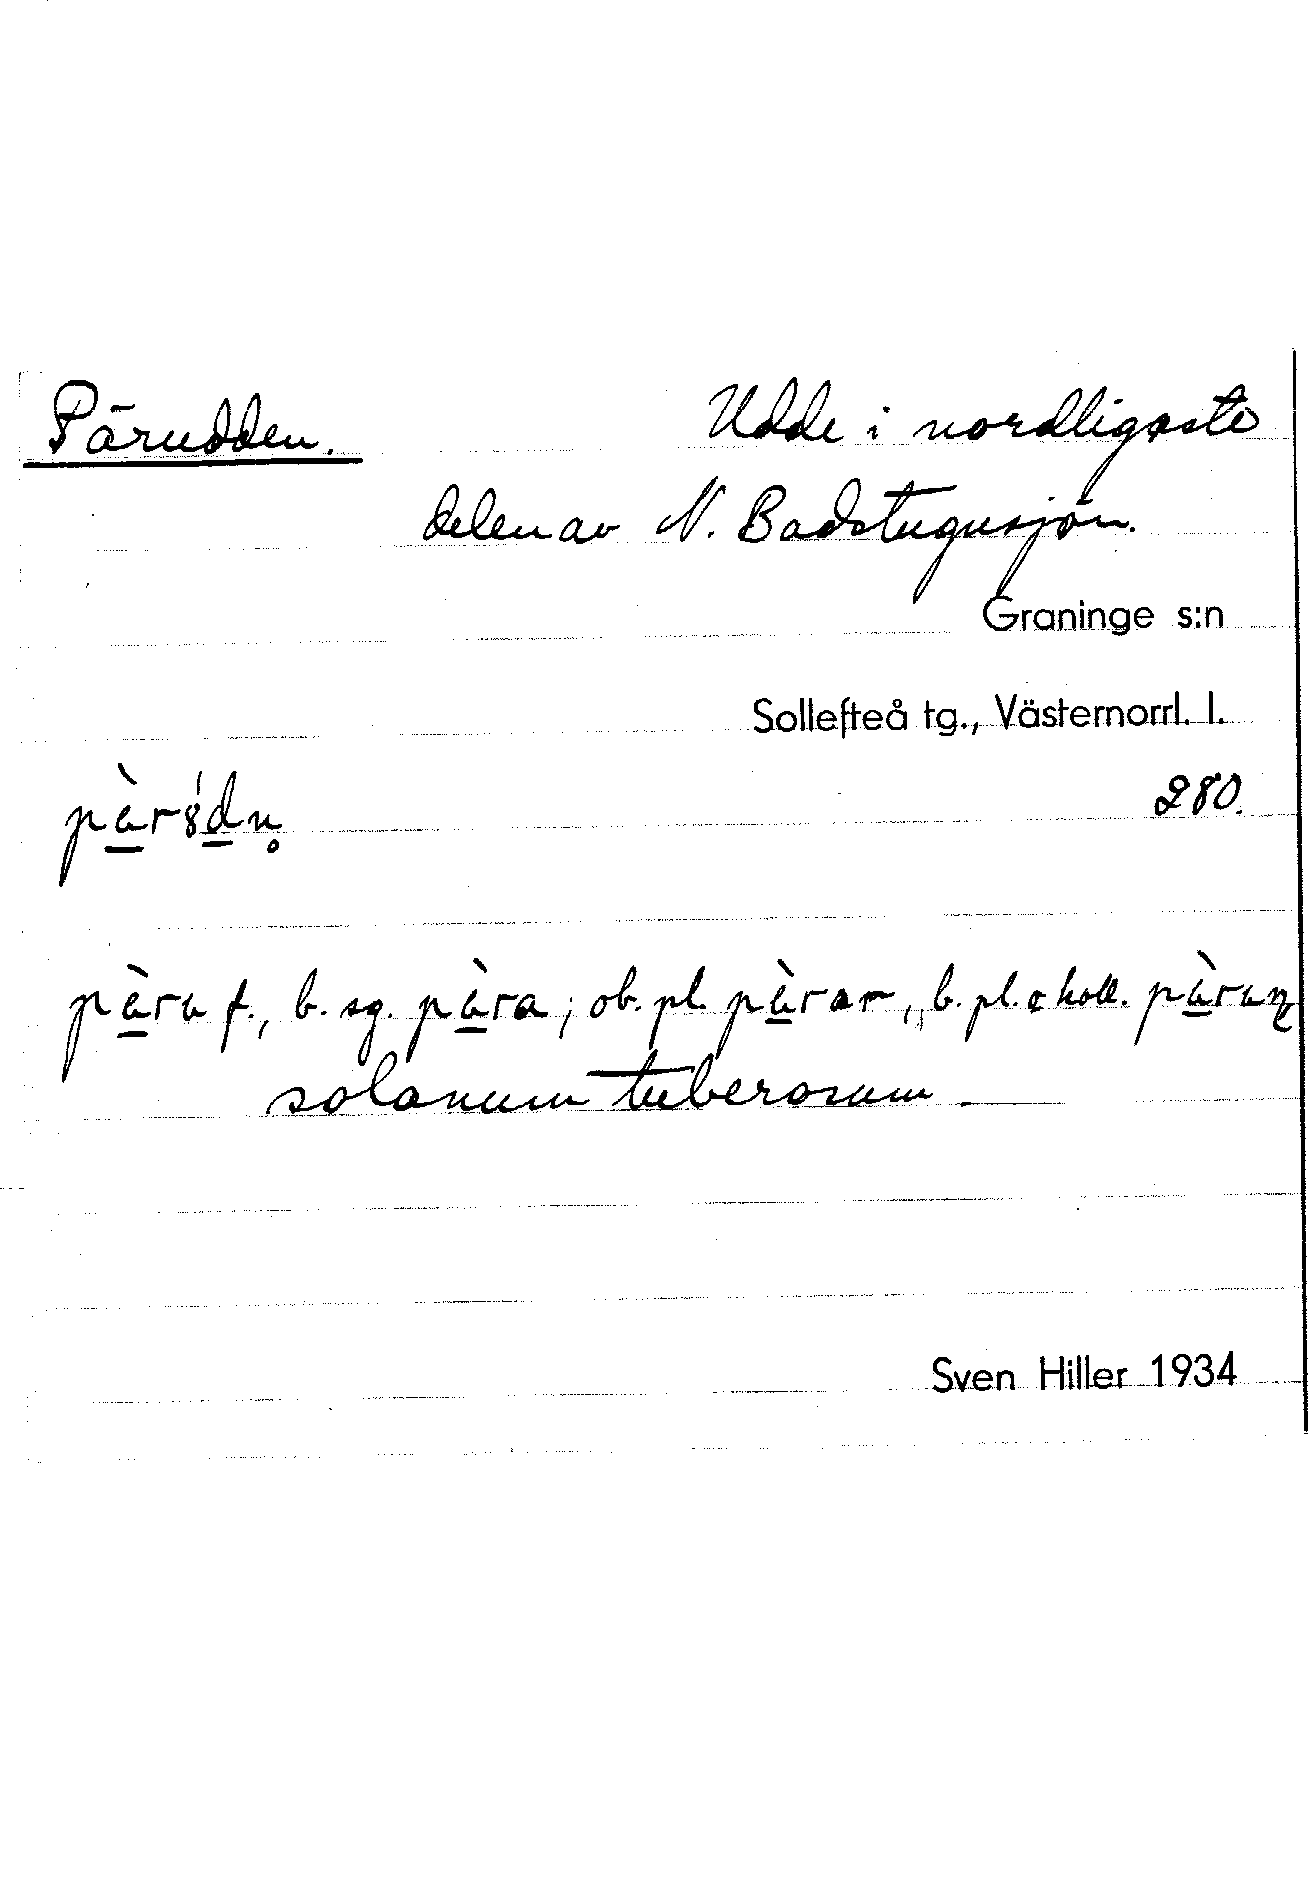 Pärudden. Udde i nordligaste
delen av N. Badstugusjön.
Graninge s:n
Sollefteå tg., Västernorrl. l.
pàr8́dn̥ 280.
pàru f., b. sg. pàra; ob. pl. pàrar, b. pl. o koll. pàruɳ
solanum tuberosum
Sven Hiller 1934